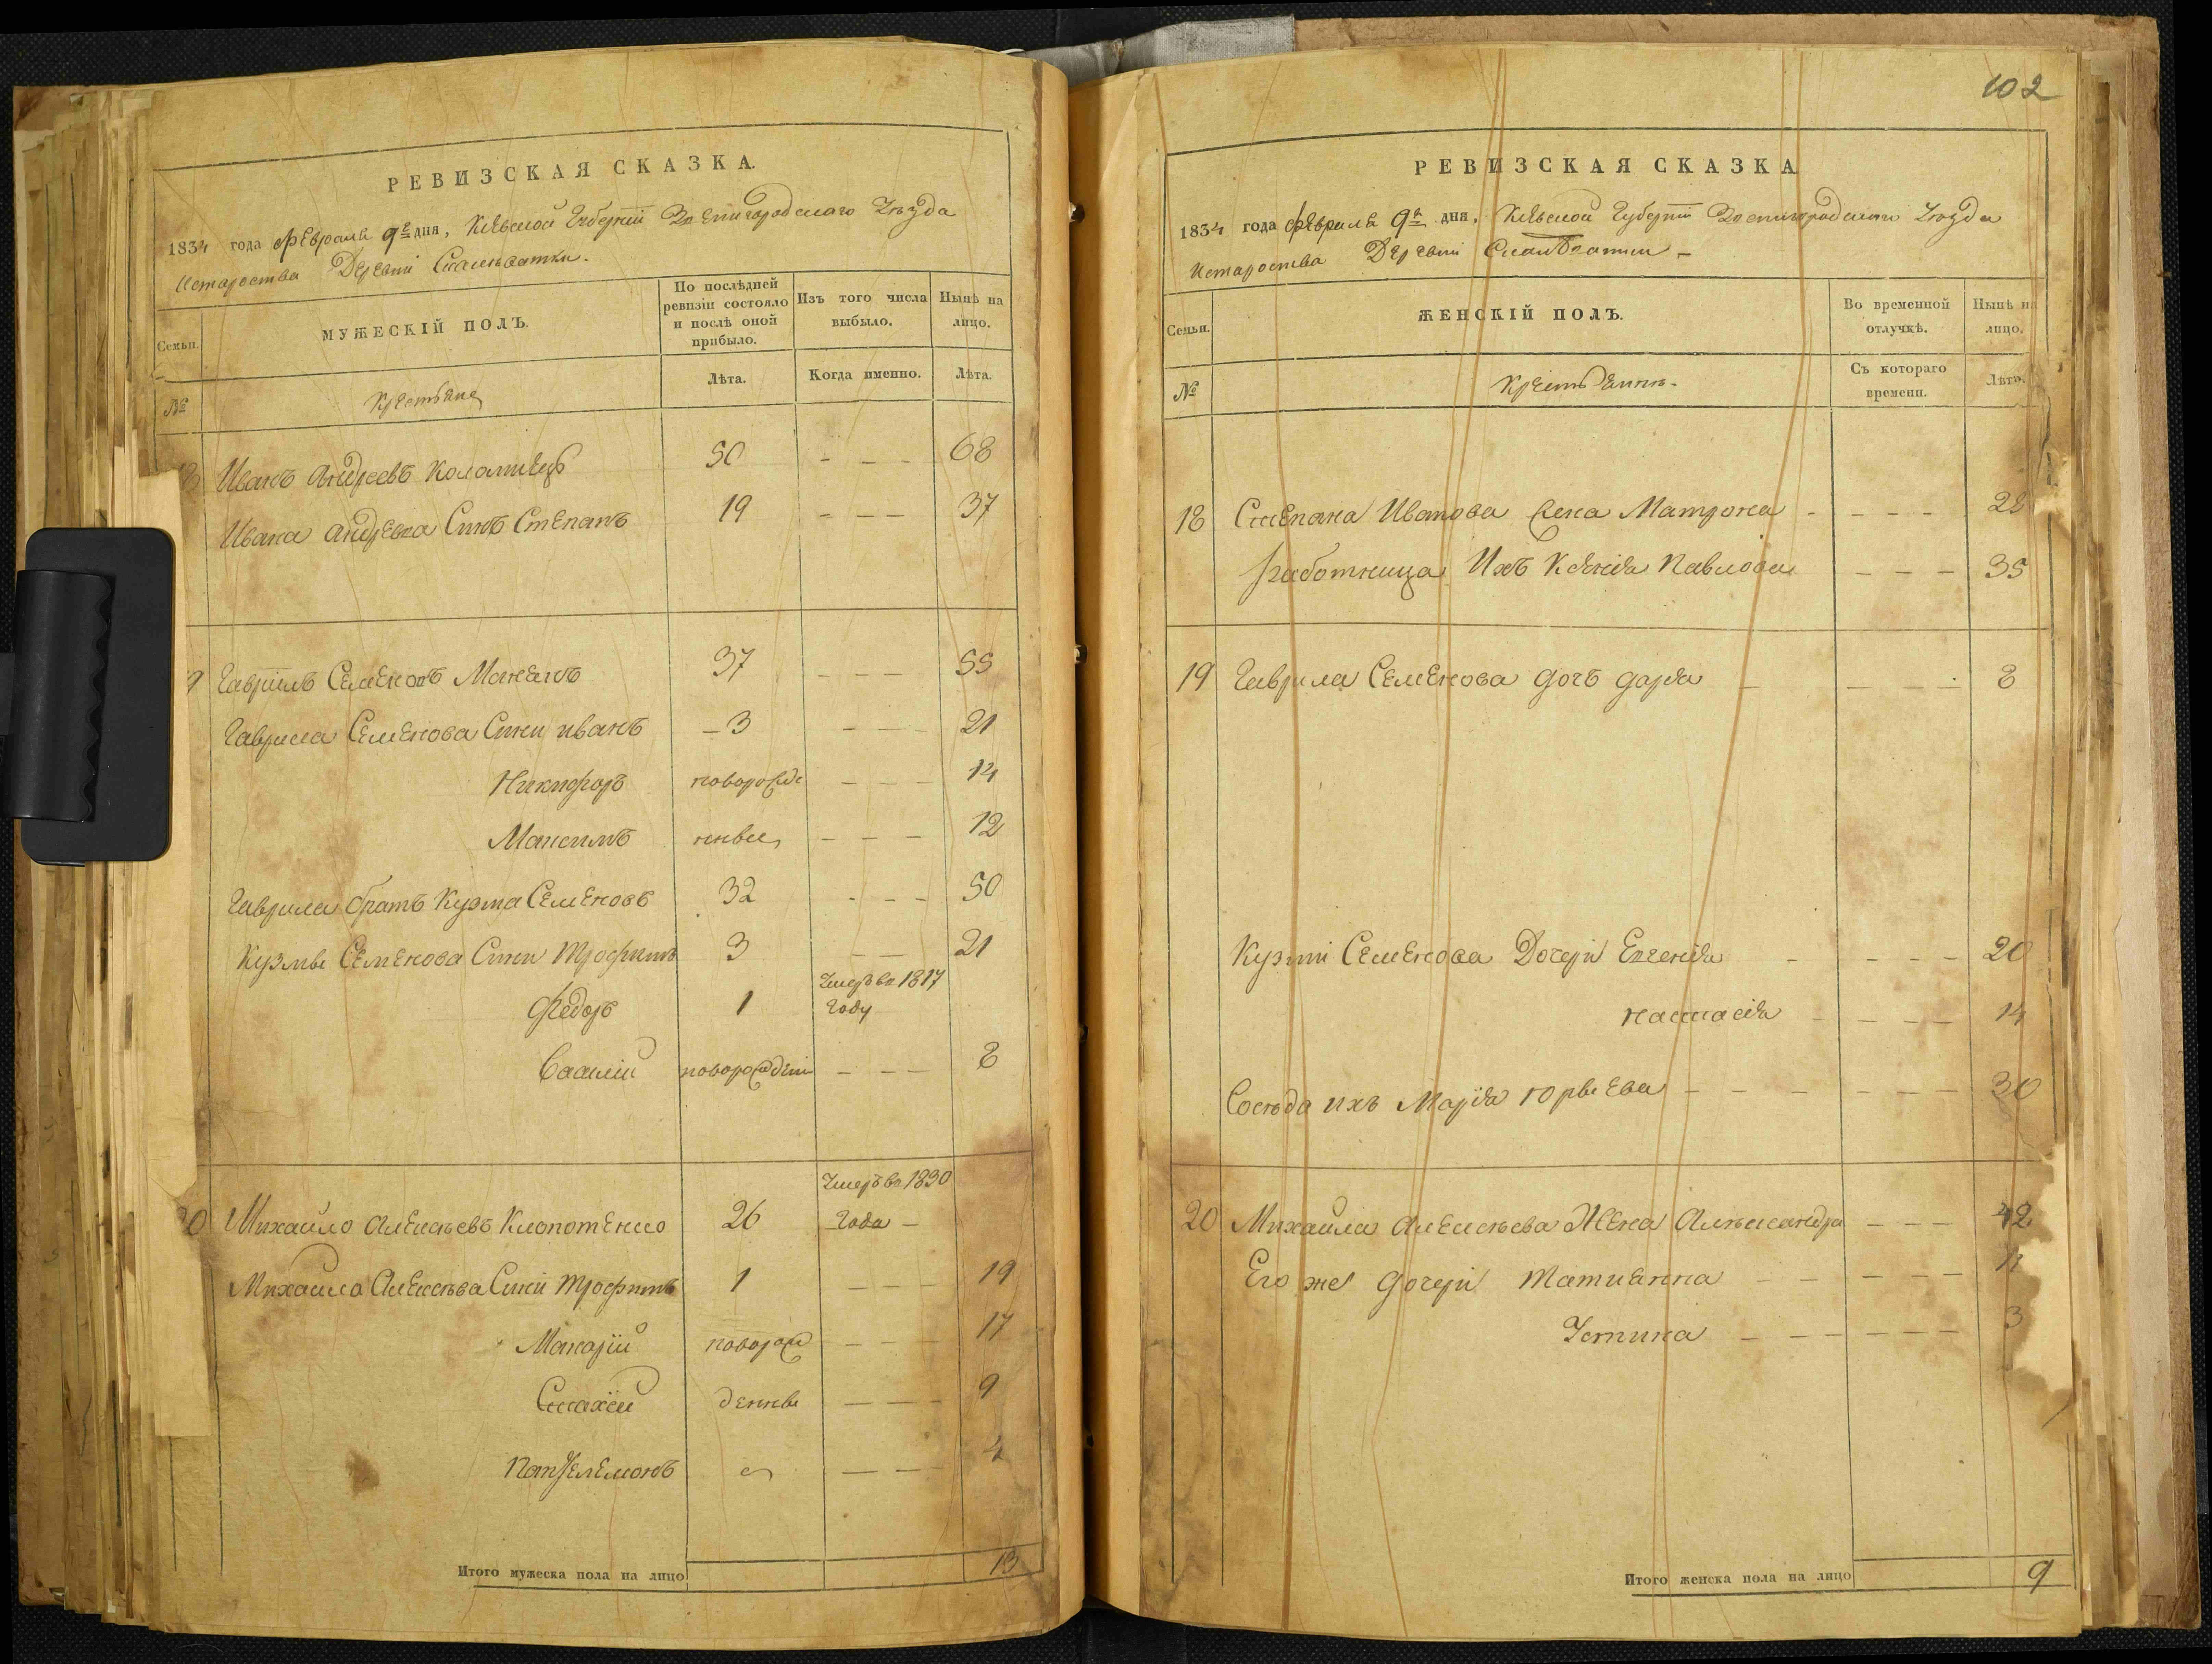 РЕВИЗСКАЯ СКАЗКА.
1834 года февраля 9го дня, Кіевской Губерніи Звенигородскаго Уѣзда
Староства Деревни
Семьи.
МУЖЕСКІЙ ПОЛЪ.
По послѣдней ревизіи состояло и послѣ оной прибыло.
Изъ того числа выбыло.
Нынѣ на лицо.
№
Крестьяне
Лѣта.
Когда именно.
Лѣта.
Иванъ Андреевъ Коломіецъ 50 - - - 68
Ивана Андреева Синъ Степанъ 19 - - - 37
Гавріилъ Семеновъ 37 - - - 55
Гаврила Семенова Сини иванъ - 3 - - - 21
Никифоръ новорожде - - - 14
Максимъ нные - - - 12
Гаврила братъ Кузма Семеновъ 32 - - - 50
Кузмы Семенова Сини Трофимъ 3 - - 21
Умеръ в 1817
Федоръ 1 Году
Василій новорожденій - - - 8
Умеръ в 1830
20 Михайло Алексѣевъ Клопотенко 26 Года -
Михаила Алексѣева Сини Трофимъ 1 - - - 19
Макарій новорож - - - 17
денны - - - 9
Пантелемонъ - - 4
Итого мужеска пола на лицо 13
102
РЕВИЗСКАЯ СКАЗКА
1834 года февраля 9го дня, Кіевской Губерніи Звенигородскаго Уѣзда
Староства Деревни
Семьи.
ЖЕНСКІЙ ПОЛЪ.
Во временной отлучкѣ.
Нынѣ на лицо.
№
Крестьянки.
Съ котораго времени.
Лѣта.
18 Степана Иванова жена Матрона - - - - 28
работница Ихъ Ксенія Павлова - - - 35
19 Гаврила Семенова дочь дарія - - - - 8
Кузми Семенова Дочери Евгенія - - - - 20
настасія - - - - 14
Сосѣда ихъ Марія юрьева - - - - - - 30
20 Михаила Алексѣева Жена Александра - - - 42
Его же дочери Татианна - - - - - 11
Устина - - - - - - 3
Итого женска пола на лицо 9